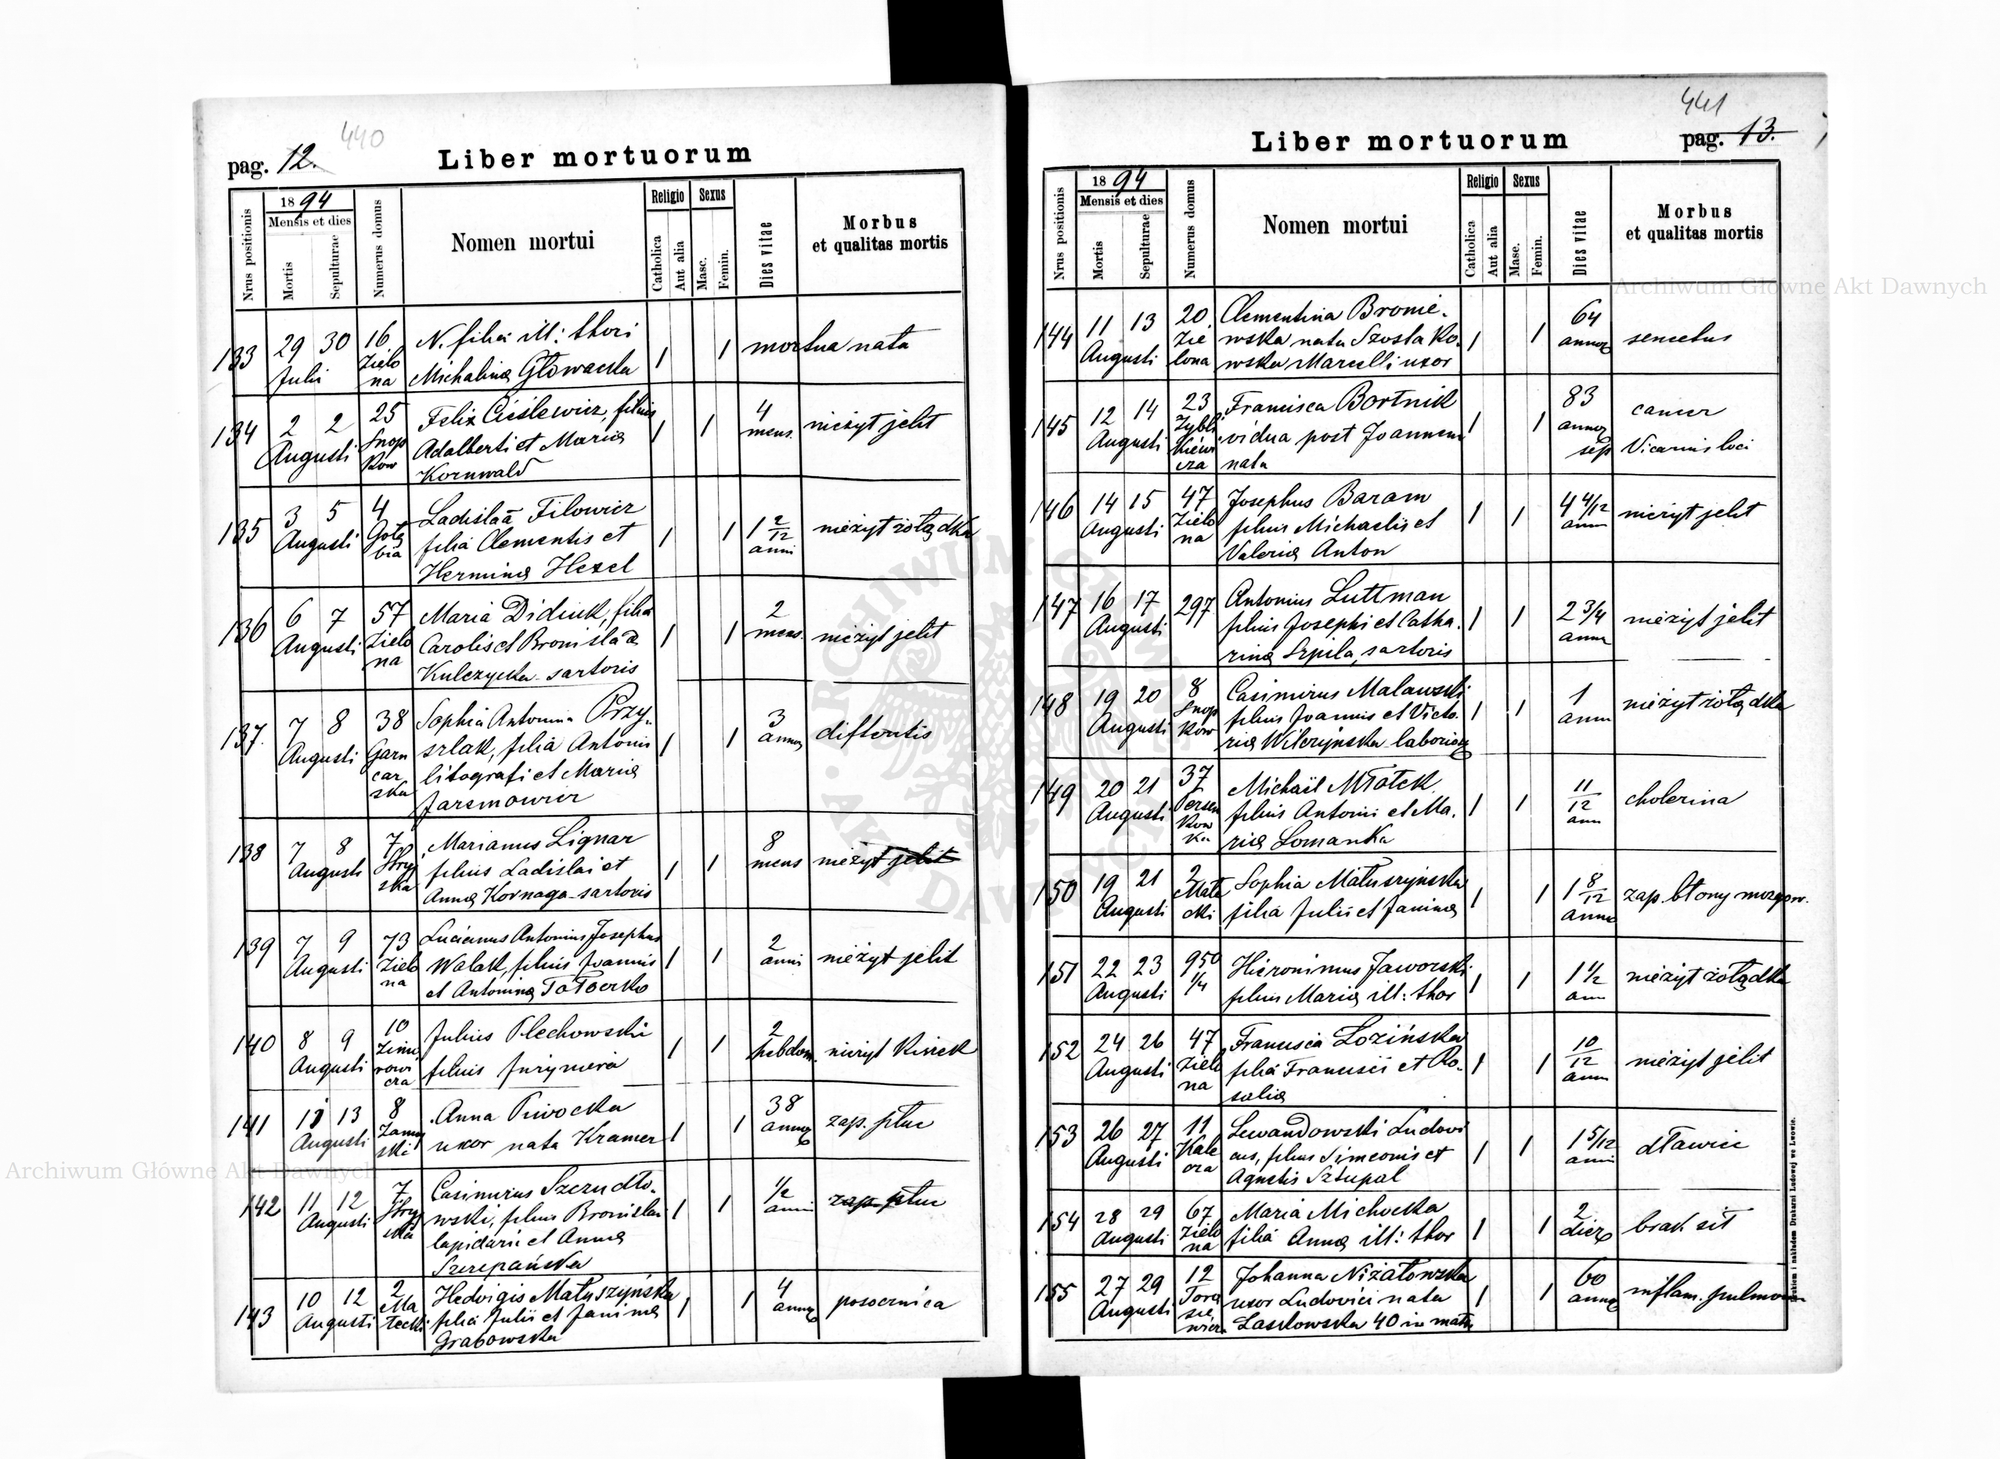 440
pag. 12.
Liber mortuorum
Nrus positionis
1894
Mensis et dies
Mortis
Sepulturae
Numerus domus
Nomen mortui
Religio
Catholica
Aut alia
Sexus
Masc.
Femin.
Dies vitae
Morbus
et qualitas mortis
133 29 30 16 N. filia ill: thori
Julii Zielo Michalina Głowacka 1 1 mortua nata
na
134 2 2 25 Felix Cieślewicz, filius
Augusti Snop Adalberti et Maria 1 1 4 mens. nieżyt jelit
kow Kornwald
135 3 5 4 Ladislaa Filowicz
Augusti Gołę filia Clementis et 1 1 1 2/12 anni nieżyt żołądka
bia Hermina Hexel
136 6 7 57 Maria Didiuk, filia
Augusti Zielo Carolis et Bronislaa 1 1 2 mens. nieżyt jelit
na Kulczycka sartoris
137. 7 8 38 Sophia Antonina Przy-
Augusti Garn szlak, filia Antonii 1 1 3 annor difteritis
car litografi et Maria
ska Jaremowicz
138 7 8 7 Marianus Lignar
Augusti Stryj filius Ladislai et 1 1 8 mens nieżyt jelit
ska Anna Kornaga-sartoris
139 7 9 73 Lucianus Antonius Josephus
Augusti Zielo Walak, filius Joannis 1 1 2 anni nieżyt jelit
na et Antonina
140 8 9 10 Julius Plechowski
Augusti Zimo filius 1 1 2 hebdom. nieżyt kiszek
rowi
cza
141 11 13 8 Anna Piwocka
Augusti Zamoj uxor nata Kramer 1 1 38 annor zap. płuc
ski
142 11 12 7 Casimirus Szczudło-
Augusti Stryj wski, filius Bronislai 1 1 1/2 anni zap. płuc
ska lapidarii et Anna
Szczepańska
143 10 12 2 Hedvigis Matuszyńska
Augusti Ma filia Julii et Janina 1 1 4 annor posocznica
łecki Grabowska
441
pag. 13.
Liber mortuorum
Nrus positionis
1894
Mensis et dies
Mortis
Sepulturae
Numerus domus
Nomen mortui
Religio
Catholica
Aut alia
Sexus
Masc.
Femin.
Dies vitae
Morbus
et qualitas mortis
144 11 13 20 Clementina Bronie-
Augusti Zie wska nata Szostako- 1 1 64 annor senectus
lona wska Marcelli uxor
145 12 14 23 Francisca Bortnik 83 cancer
Augusti Zybli vidua post Joannem 1 1 annor
kiewi nata sep Vicarius loci
cza
146 14 15 47 Josephus Baram
Augusti Zielo filius Michaelis et 1 1 4 4/12 ann nieżyt jelit
na Valeria Anton
147 16 17 297 Antonius Luttman
Augusti filius Josephi et Catha- 1 1 2 3/4 ann nieżyt jelit
rina Szpila, sartoris
148 19 20 8 Casimirus Malawski
Augusti Snop filius Joannis et Victo- 1 1 1 ann nieżyt żołądka
kow ria Wilczyńska laborios
149 20 21 37 Michael Młotek
Augusti Persen filius Antonii et Ma- 1 1 11/12 ann cholerina
kow ria Lomanka
ka
150 19 21 2 Sophia Matuszyńska
Augusti Małe filia Julii et Janina 1 1 1 8/12 anni zap. błony mózgow.
cki
151 22 23 950 Hieronimus Jaworski
Augusti 1/4 filius Maria ill: thor 1 1 1 1/2 ann nieżyt żołądka
152 24 26 47 Francisca Łozińska
Augusti Zielo filia Francisci et Ro- 1 1 10/12 ann nieżyt jelit
na salia
153 26 27 11 Lewandowski Ludovi
Augusti Kale cus, filius Simeonis et 1 1 1 5/12 anni dławiec
cza Agnetis Sztupal
154 28 29 67 Maria Michocka
Augusti Zielo filia Anna ill: thor 1 1 2 dier brak sił
na
155 27 29 12 Johanna Niżałowska
Augusti Toro uxor Ludovici nata 1 1 60 annor inflam. pulmon
sie Laszkowska 40 in matr
wicza
nakładem Drukarni Ludowej we Lwowie.
Archiwum Główne Akt Dawnych
Archiwum Główne Akt Dawnych
ARCHIWUM GŁÓWNE AKT DAWNYCH